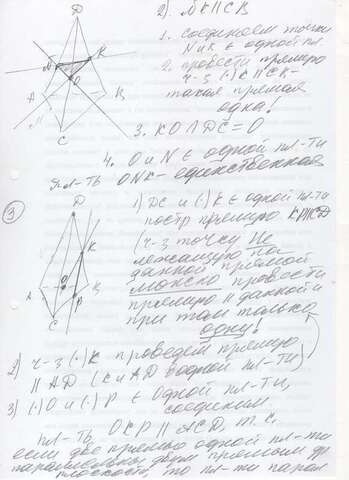 Д
2). NK || CB
1. соединяем точки
N и K ∈ одной пл.
2. провести прямую
ч-з (·) K || CB -
такая прямая
одна!
3. KO ∩ ДС = O
4. O и N ∈ одной пл-ти
пл-ть ONK - единственная
N
K
O
A
M
C
3
Д
K
O
A
P
C
B
1) DC и (·) K ∈ одной пл-ти
постр прямую KP || СД
(ч-з точку не
лежащую на
данной прямой
можно провести
прямую || данной и
при том только
одну!
2) ч-з (·) K проведем прямую
|| AD (K и AD в одной пл-ти)
3) (·) O и (·) P ∈ одной пл-ти,
соединим.
пл-ть OKP || ACD, т.к.
если две прямые одной пл-ти
параллельны двум прямым др
плоскости, то пл-ти парал